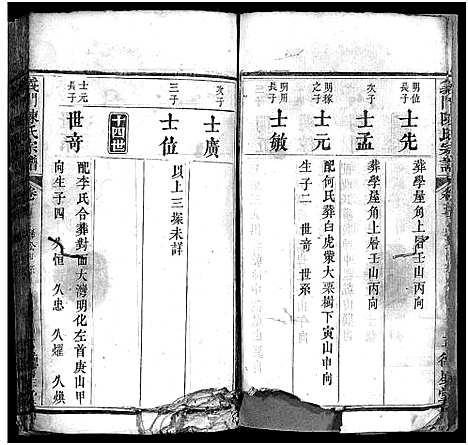 明位
長子
士先
葬學屋角上層壬山丙向
次子
士孟
葬學屋角上層壬山丙向
明用
長子
士元
配何氏葬白虎蒙大栗樹下寅山申向
生子二 世奇 世系
士敏
次子
士廣
三子
士位
以上三塚未詳
十四世
士元
長子
世奇
配李氏合葬對面大灣明化左首庚山甲
向生子四 久恒 久忠 久燿 久煥
義門陳氏宗譜